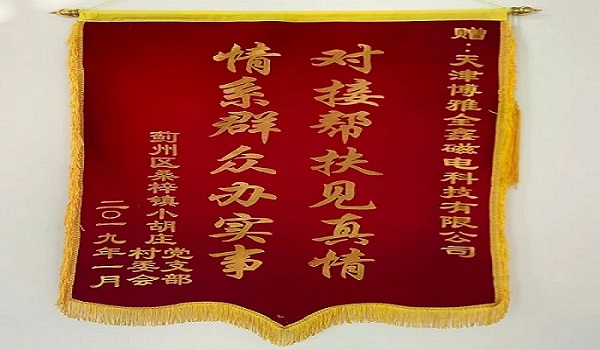 赠：天津博雅全鑫磁电科技有限公司
对接帮扶见真情
情系群众办实事
蓟州区桑梓镇小胡庄
党支部
村委会
二〇一九年一月